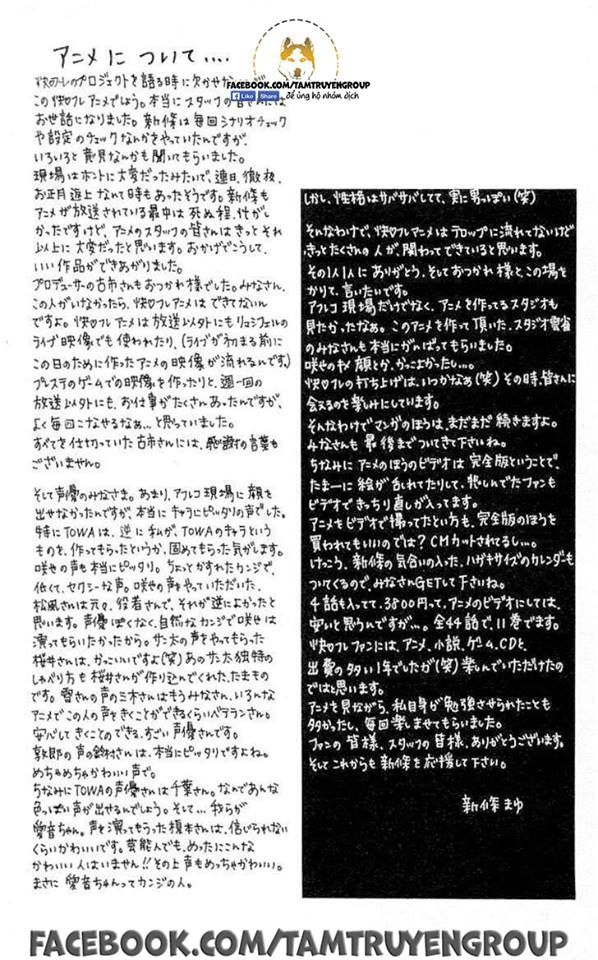 FACEBOOK.COM/TAMTRUYENGROUP
Like Share để ủng hộ nhóm dịch
アニメに ついて....
快♡フレのプロジェクトを語る時に欠かせない
この快♡フレアニメでしょう。本当にスタッフの皆さんには
お世話になりました。新條は毎回シナリオチェック
や設定のチェックなんかをやっていたんですが、
いろいろと意見なんかも聞いてもらいました。
現場はホントに大変だったみたいで、連日、徹夜、
お正月返上なんて時もあったそうです。新條も
アニメが放送されている最中は死ぬ程、忙がし
かったですけど、アニメのスタッフの皆さんはきっとそれ
以上に大変だったと思います。おかげでこうして、
いい作品ができあがりました。
プロデューサーの古市さんもおつかれ様でした。みなさん、
この人がいなかったら、快♡フレアニメはできてないん
ですよ。快♡フレアニメは放送以外にもリュシフェルの
ライブ映像でも使われたり、(ライブが初まる前に
この日のために作ったアニメの映像が流れるんです。)
プレステのゲームでの映像を作ったりと、週一回の
放送以外にも、お仕事がたくさんあったんですが、
よく毎回こなせるなぁ...と思っていました。
すべてを仕切っていた古市さんには、感謝の言葉も
ございません。
そして声優のみなさま。あまり、アフレコ現場に顔を
出せなかったんですが、本当にキャラにピッタリの声でした。
特にTOWAは、逆に私が、TOWAのキャラという
ものを、作ってもらったというか、固めてもらった気がします。
咲也の声も本当にピッタリ。ちょっとかすれたカンジで、
低くて、セクシーな声。咲也の声をやっていただいた、
松風さんは元々、役者さんで、それが逆によかったと
思います。声優ぽくなく、自然なカンジで咲也は
演ってもらいたかったから。サン太の声をやってもらった
桜井さんは、かっこいいですよ(笑)あのサン太独特の
しゃべり方も桜井さんが作り込んでくれた、たまもの
です。雪さんの声の三木さんはもうみなさん、いろんな
アニメでこの人の声をきくことができるくらいベテランさん。
安心してきくことのできる、すごい声優さんです。
敦郎の声の鈴村さんは、本当にピッタリですよね。
めちゃめちゃかわいい声で。
ちなみにTOWAの声優さんは千葉さん。なんであんな
色っぽい声が出せるんでしょう。そして...我らが
愛音ちゃん。声を演ってもらった榎本さんは、信じられない
くらいかわいいです。芸能人でも、めったにこんな
かわいい人はいません!!その上声もめっちゃかわいい。
まさに 愛音ちゃんってカンジの人。
しかし、性格はサバサバしてて、実に男っぽい(笑)
そんなわけで、快♡フレアニメはテロップに流れてないけど
きっとたくさんの人が、関わってできていると思います。
その1人1人にありがとう、そしておつかれ様と、この場を
かりて、言いたいです。
アフレコ現場だけでなく、アニメを作ってるスタジオも
見たかったなぁ。このアニメを作って頂いた、スタジオ雲雀
のみなさんも本当にがんばってもらいました。
咲也のキメ顔とか、かっこよかったし...。
快♡フレの打ち上げは、いつかなぁ(笑)その時、皆さんに
会えるのを楽しみにしています。
そんなわけでマンガのほうは、まだまだ続きますよ。
みなさんも 最後までついてきて下さいね。
ちなみにアニメのほうのビデオは完全版ということで、
たまーに絵が乱れてたりして、悲しんでたファンも
ビデオできっちり直しが入ってます。
アニメをビデオで撮ってたという方も、完全版のほうを
買われてもいいのでは?CMカットされてるし...。
けっこう、新條の気合いの入った、ハガキサイズのカレンダーも
ついてくるので、みなさんGETして下さいね。
4話も入ってて、3800円って、アニメのビデオにしては、
安いと思うんですが...。全44話で、11巻でます。
快♡フレファンには、アニメ、小説、ゲーム、CDと、
出費の多い1年でしたが(笑)楽しんでいただけたの
ではと思います。
アニメを見ながら、私自身が勉強させられたことも
多かったし、毎回楽しませてもらいました。
ファンの皆様、スタッフの皆様、ありがとうございます。
そしてこれからも新條を応援して下さい。
新條まゆ
FACEBOOK.COM/TAMTRUYENGROUP